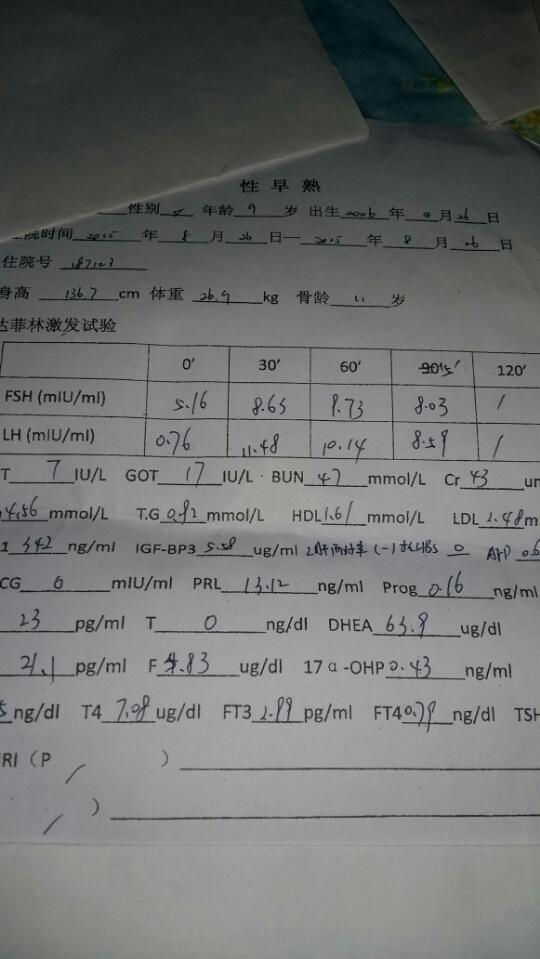 性早熟
性别 女 年龄 9 岁 出生 2006 年 月 26 日
院时间 2015 年 8 月 26 日—2015 年 8 月 26 日
住院号 187123
身高 136.7 cm 体重 26.9 kg 骨龄 11 岁
达菲林激发试验
0′ 30′ 60′ 120′
FSH (mIU/ml) 5.16 8.65 9.73 8.03 /
LH (mIU/ml) 0.76 11.48 10.14 8.59 /
T 7 IU/L GOT 17 IU/L BUN 4.7 mmol/L Cr 43
4.56 mmol/L T.G 0.92 mmol/L HDL 1.61 mmol/L LDL 2.48
1 342 ng/ml IGF-BP3 5.58 ug/ml 0 AFP 0.6
CG 0 mIU/ml PRL 13.12 ng/ml Prog 0.16 ng/ml
23 pg/ml T 0 ng/dl DHEA 63.9 ug/dl
21.1 pg/ml F 4.83 ug/dl 17α-OHP 0.43 ng/ml
5 ng/dl T4 7.08 ug/dl FT3 2.99 pg/ml FT4 0.79 ng/dl TSH
RI（P / ）
/ ）